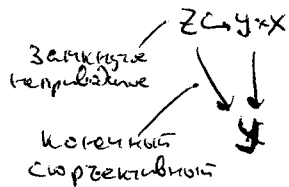 Z ↪ Y×X
Замкнутое
неприводимое
Y
Конечный
сюръективный